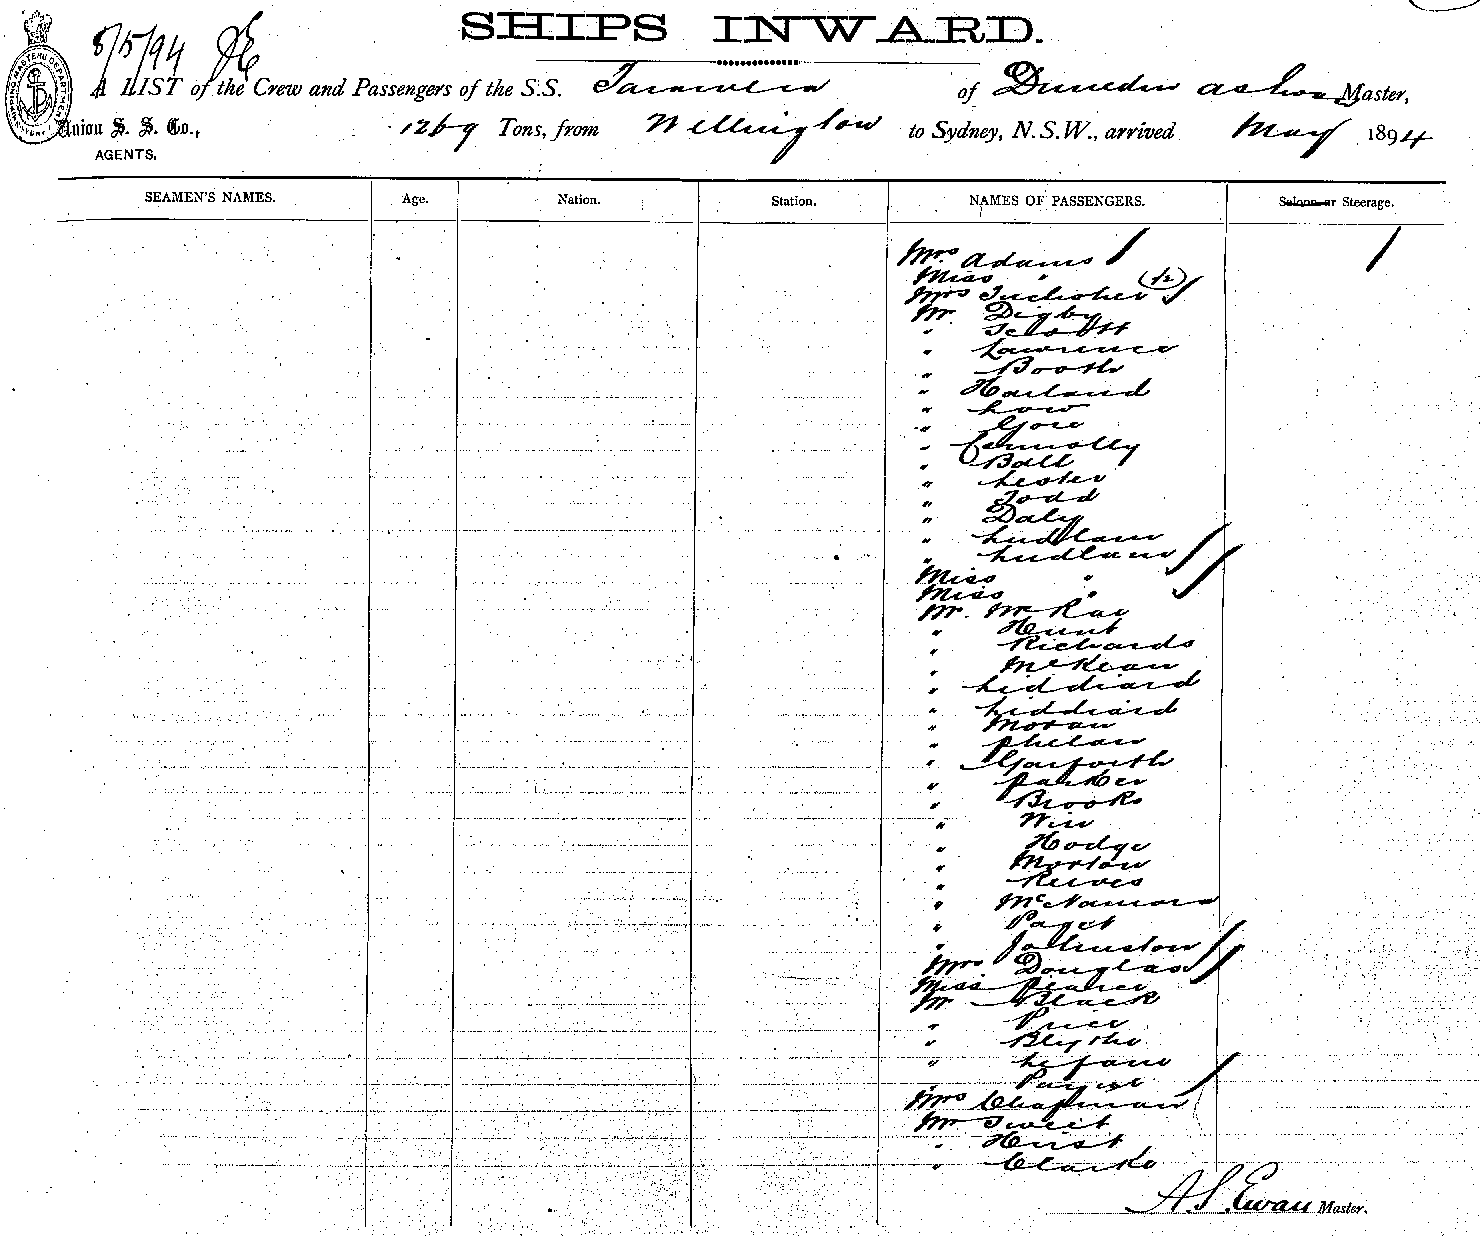 SHIPS INWARD.
8/5/94
A LIST of the Crew and Passengers of the S.S. Tarawera of Dunedin Master,
Union S. S. Co., 1269 Tons, from Wellington to Sydney, N.S.W., arrived May 1894
AGENTS.
SEAMEN'S NAMES. Age. Nation. Station. NAMES OF PASSENGERS. Saloon or Steerage.
Mrs Adams
Miss "
Mrs (1/2)
Mr. Digby
"
" Lawrence
" Booth
" Harland
" Low
" Gore
" Connolly
" Ball
" Lester
" Todd
" Daly
" Ludlam
" Ludlam
Miss "
Miss "
Mr. McRae
" Hunt
" Richards
" McKean
" Liddiard
" Liddiard
" Moran
" Phelan
" Garforth
" Parker
" Brooks
"
" Hodge
" Morton
" Reeves
" McNamara
" Paget
" Johnston
Mrs Douglas
Miss Pearce
Mr Black
" Price
" Blythe
" Lefane
"
Mrs Chapman
Mr Sweet
" Hurst
" Clarke
A S. Ewan Master.